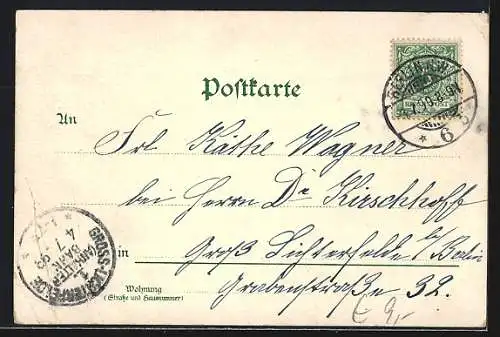 Postkarte
An
Frl. Käthe Wagner
bei Herrn Dr Kirschhoff
in Groß Lichterfelde b/Berlin
Wohnung
(Straße und Hausnummer)
Grabenstraße 32.
GROSS-LICHTERFELDE
(ANHALTER BAHN)